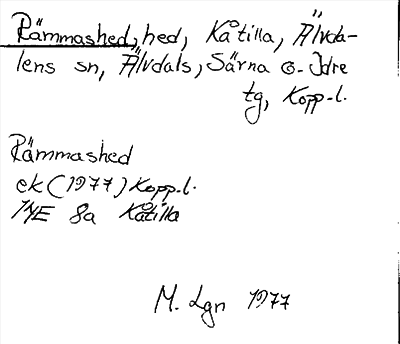 Pämmashed, hed, Kåtilla, Älvda-
lens sn, Älvdals, Särna o. Idre
tg, Kopp-l.
Pämmashed
ek (1977) Kopp-l.
14E 8a Kåtilla
M. Lgn 1977